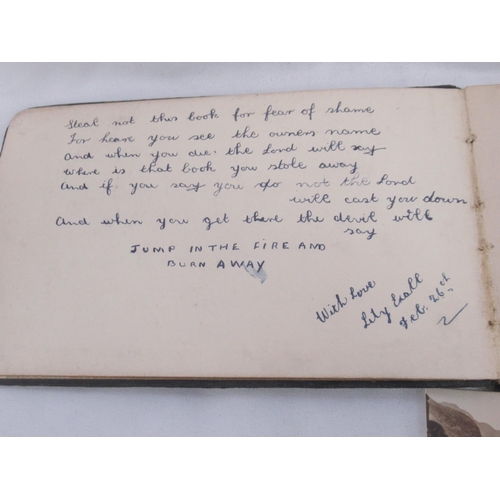 Steal not this book for fear of shame
For heare you see the owners name
and when you die. the Lord will say
where is that book you stole away
and if, you say you do not the Lord
will cast you down
And when you get there the devil will
say
JUMP IN THE FIRE AND
BURN AWAY
With Love
Lily
Feb. 26th